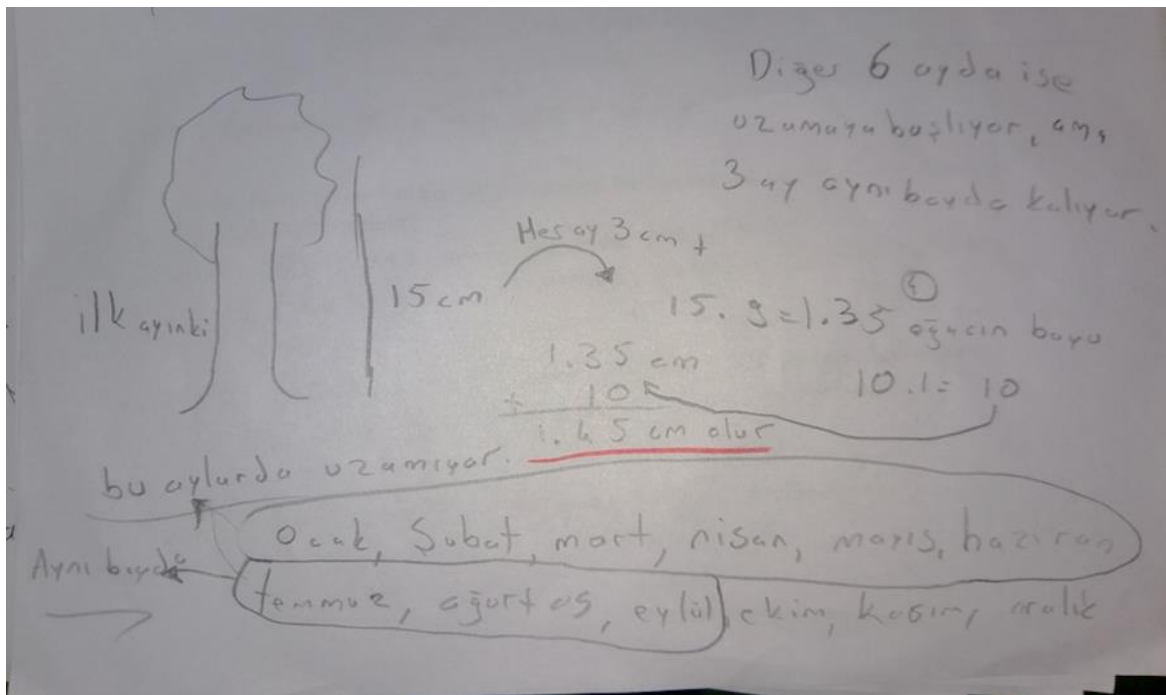 Diğer 6 ayda ise
uzamaya başlıyor, ama
3 ay aynı boyda kalıyor.
Her ay 3 cm +
ilk ayınki
15 cm
15. 9=1.35
ağacın boyu
1.35 cm
+ 10
1.45 cm olur
10.1= 10
bu aylarda uzamıyor.
Ocak, Şubat, mart, nisan, mayıs, haziran
Aynı boyda
temmuz, ağurtos, eylül, ekim, kasım, aralık